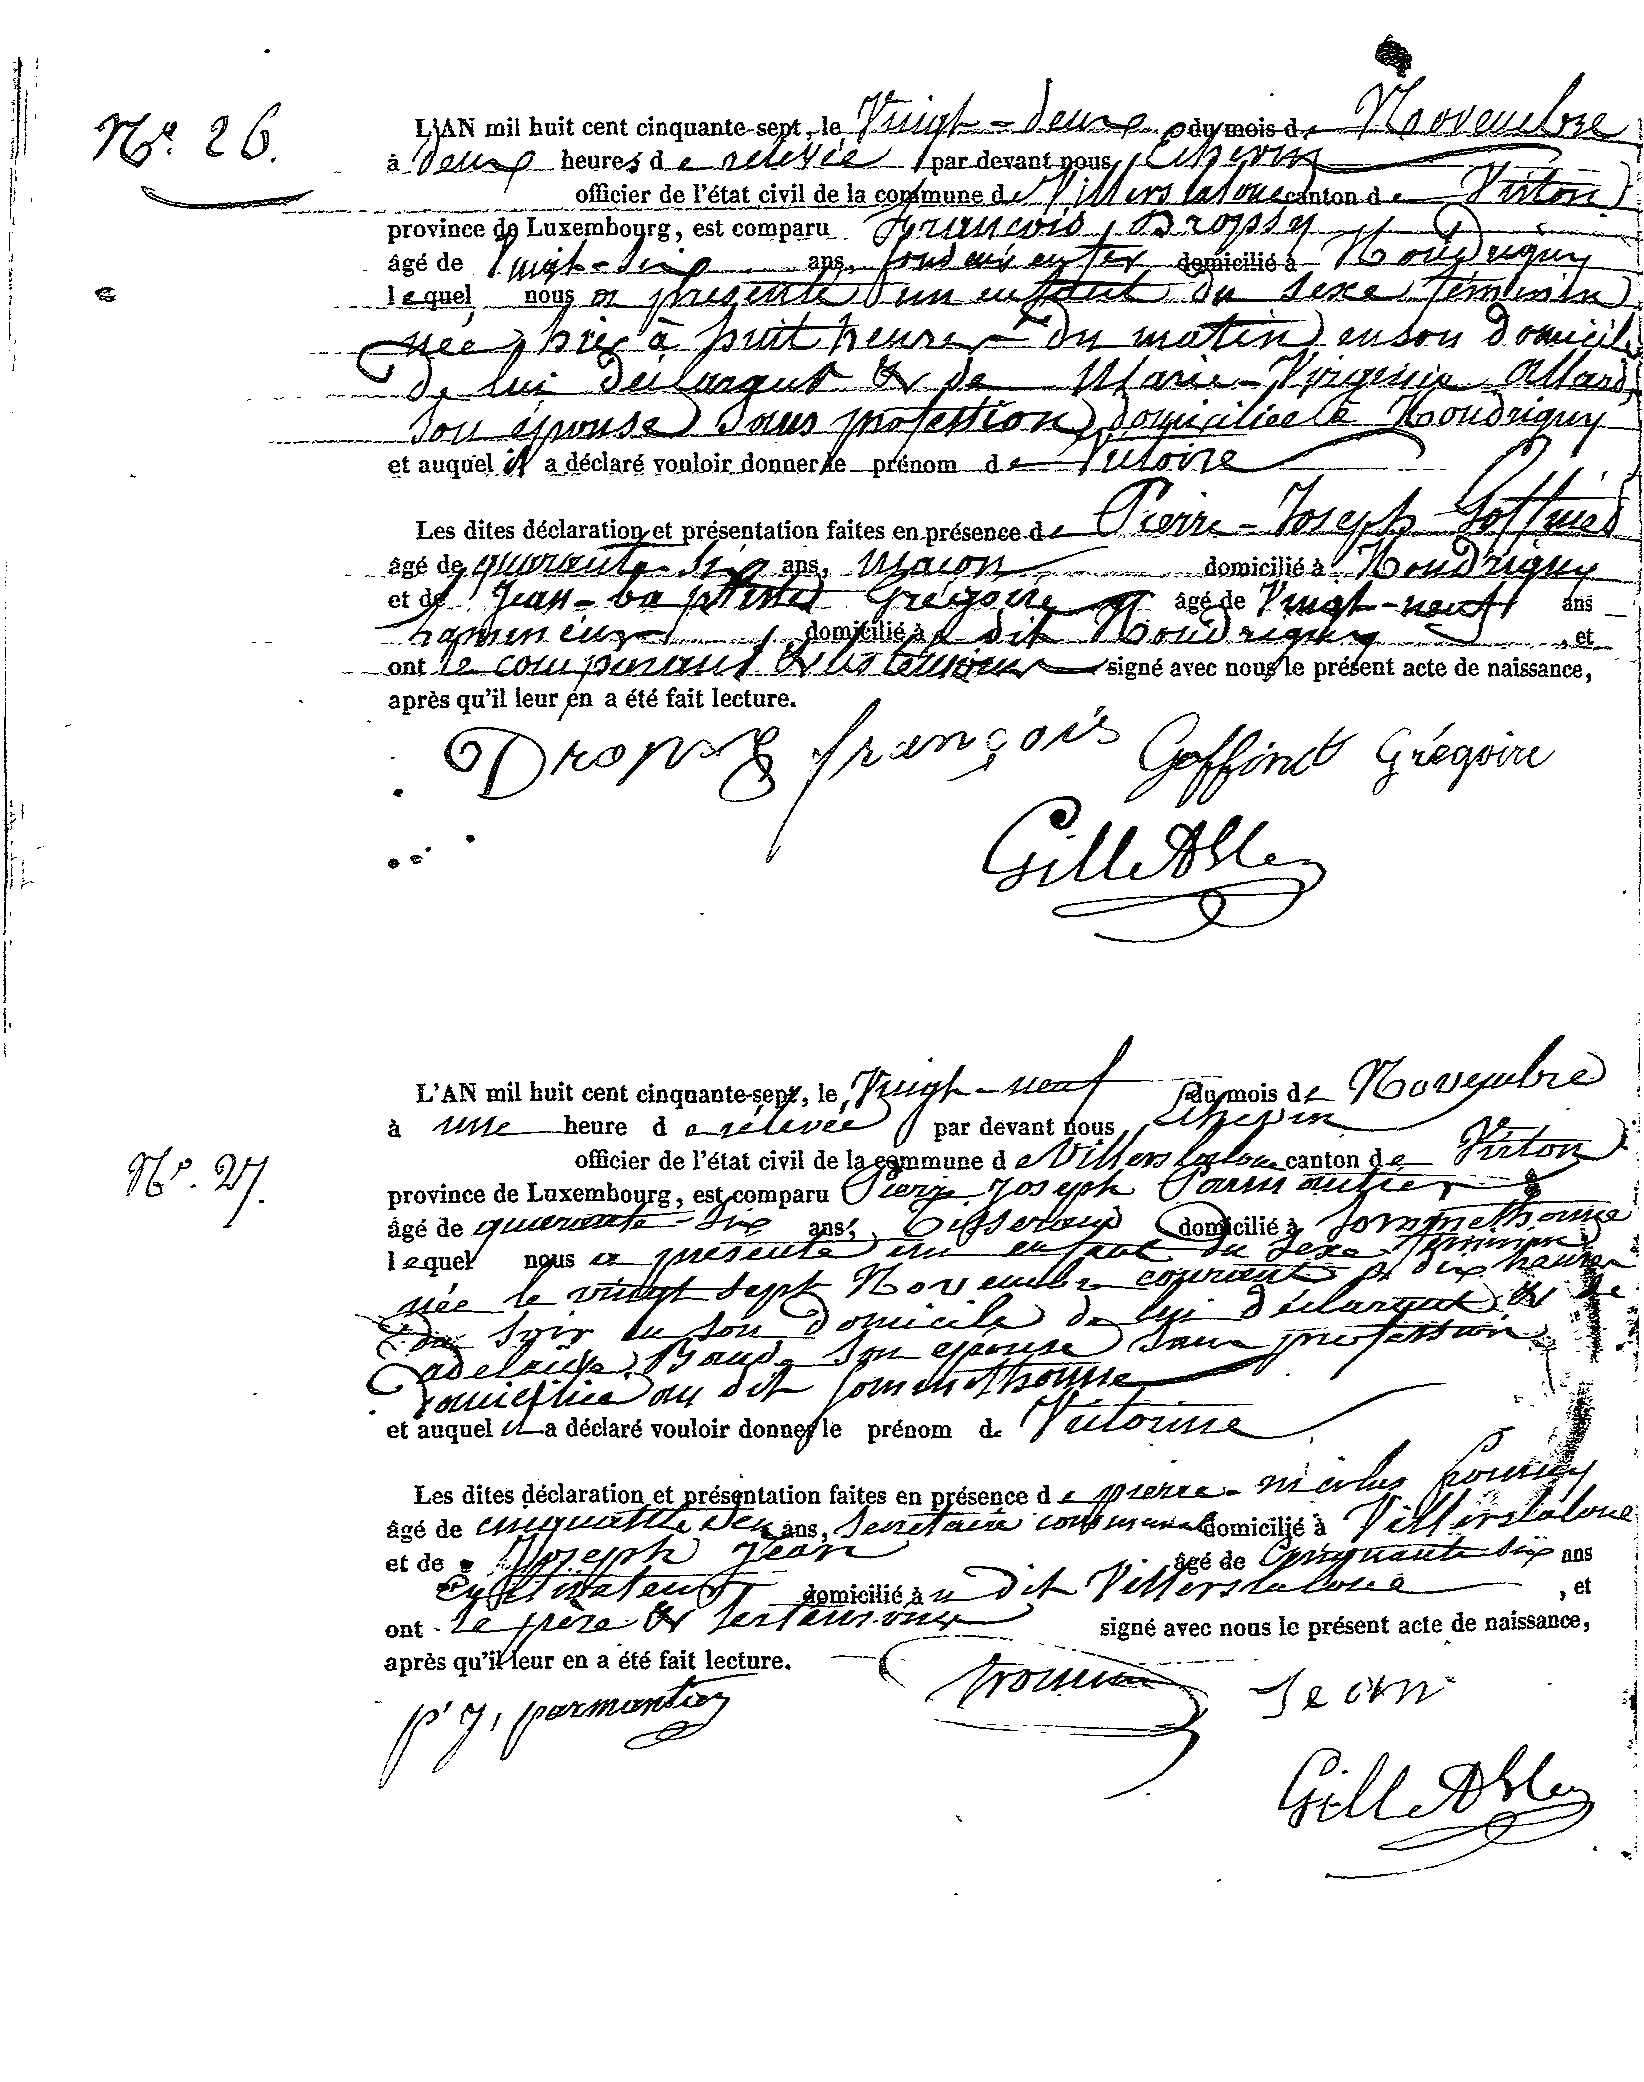 N° 26.
L'AN mil huit cent cinquante-sept, le Vingt-deux du mois de Novembre
à deux heures de relevée par devant nous Echevin
officier de l'état civil de la commune de Villerslaloue canton de Virton
province de Luxembourg, est comparu François Dropsy
âgé de Vingt-six ans, domicilié à Houdrigny
lequel nous a présenté un enfant du sexe féminin
née hier à huit heures du matin en son domicile
de lui déclarant & de Marie-Virginie Allard,
son épouse sans profession domiciliée à Houdrigny
et auquel il a déclaré vouloir donner le prénom de Victoire
Les dites déclaration et présentation faites en présence de Pierre-Joseph Goffinet
âgé de quarante-six ans, Maçon domicilié à Houdrigny
et de Jean-baptiste Grégoire âgé de Vingt-neuf ans
domicilié à u dit Houdrigny , et
ont le comparant & les témoins signé avec nous le présent acte de naissance,
après qu'il leur en a été fait lecture.
Dropsy françois Goffinet Grégoire
Gille
N° 27.
L'AN mil huit cent cinquante-sept, le Vingt-neuf du mois de Novembre
à une heure de relevée par devant nous Echevin
officier de l'état civil de la commune de Villerslaloue canton de Virton
province de Luxembourg, est comparu Pierre Joseph Parmentier
âgé de quarante-six ans, Tisserand domicilié à Sommethonne
lequel nous a présenté un enfant du sexe féminin
née le vingt sept Novembre courant à dix heures
du soir en son domicile de lui déclarant & de
adelaïde son épouse sans profession
domiciliée au dit Sommethonne
et auquel il a déclaré vouloir donner le prénom de Victorine
Les dites déclaration et présentation faites en présence de pierre-nicolas
âgé de cinquante deux ans, Secrétaire communal domicilié à Villerslaloue
et de Joseph Jean âgé de Cinquante six ans
Cultivateur domicilié à u dit Villerslaloue , et
ont le père & les témoins signé avec nous le présent acte de naissance,
après qu'il leur en a été fait lecture.
p. j. parmentier Jean
Gille